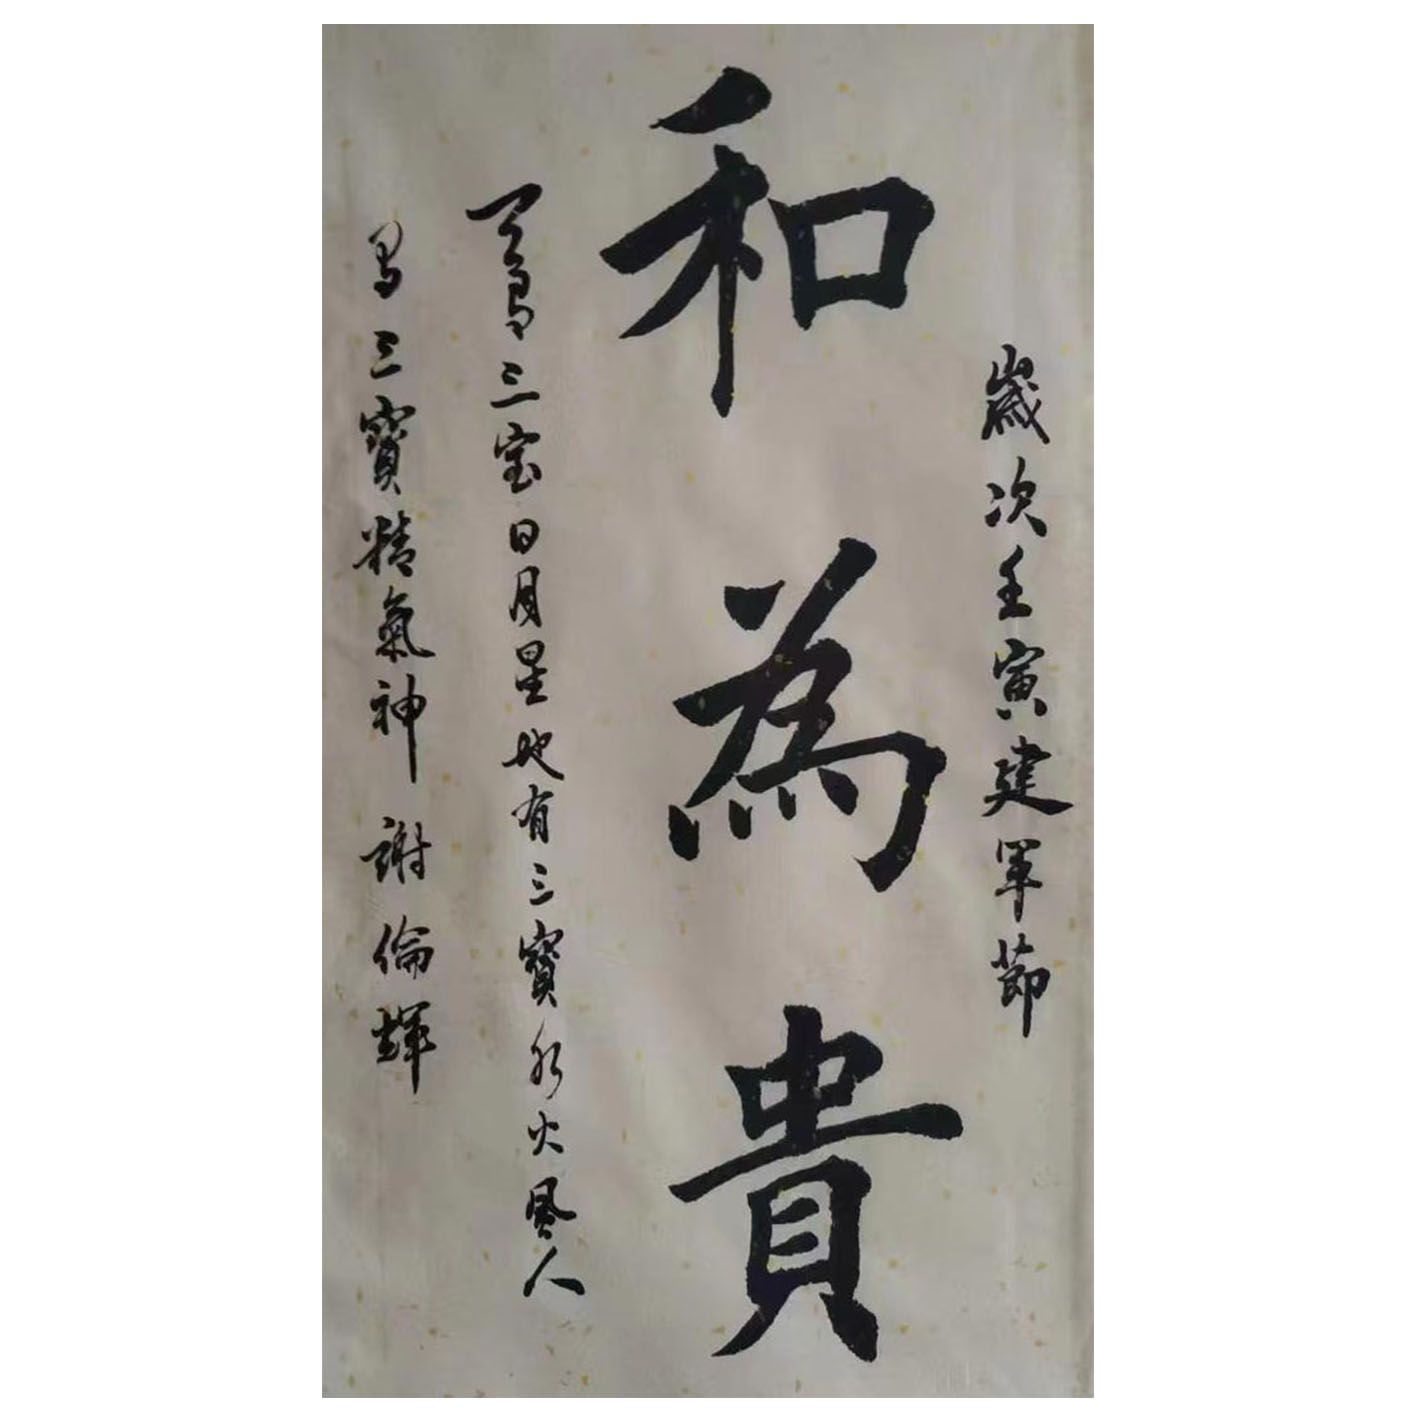 歲次壬寅建軍節
和為貴
天有三宝日月星地有三寶水火風人
有三寶精氣神 謝倫輝